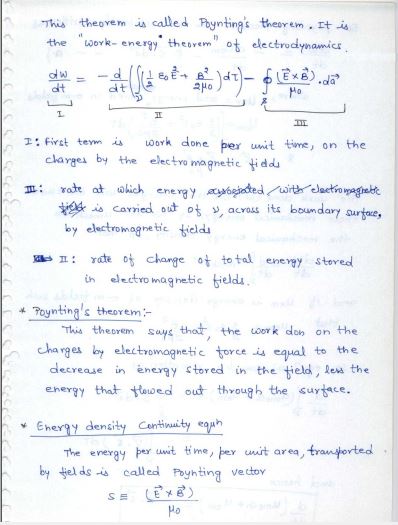 This theorem is called Poynting's theorem. It is
the "work-energy" theorem" of electrodynamics.
dw/dt = - d/dt ∫_v (1/2 ε₀ E² + B²/2μ₀) dτ - ∮_s (E⃗ × B⃗)/μ₀ . da⃗
I II III
I: First term is work done per unit time, on the
charges by the electromagnetic fields
III: rate at which energy associated with electromagnetic
field is carried out of v, across its boundary surface,
by electromagnetic fields
II: rate of change of total energy stored
in electromagnetic fields.
* Poynting's theorem:-
This theorem says that, the work don on the
charges by electromagnetic force is equal to the
decrease in energy stored in the field, less the
energy that flowed out through the surface.
* Energy density Continuity equn
The energy per unit time, per unit area, transported
by fields is called Poynting vector
S ≡ (E⃗ × B⃗)/μ₀